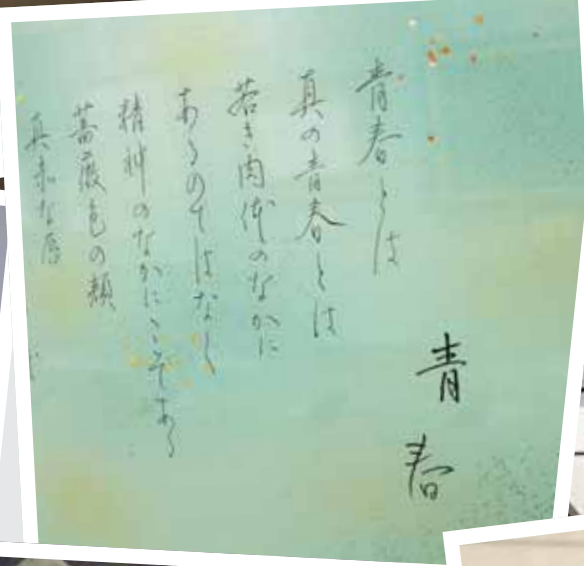 青春
青春とは
真の青春とは
若き肉体のなかに
あるのではなく
精神のなかにこそある
薔薇色の頬
真赤な唇